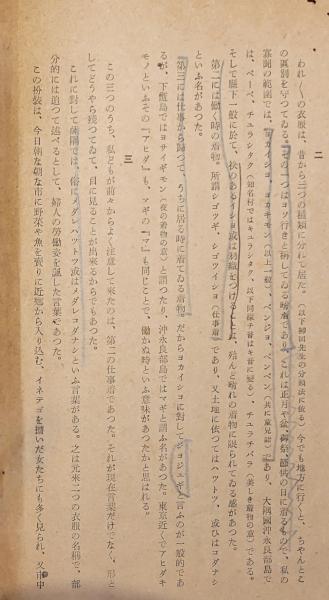 二
われ〳〵の衣服は、昔から三つの種類に分れて居た。（以下柳田先生の分類法に依る）今でも地方に行くと、ちやんとこ
の區別を守つてゐる。その一つはヨソ行きと稱してゐる晴着であり、これは正月や盆、御祭、節供の日に着るもので、私の
蒐聞の範圍では、ヨカイショ、ヨカキモン（以上一般）、ベンジョ、ベンベン（共に童兒語）であり、大隅國沖永良部島で
は、ベーベ、チュラシタク（知名村ではキュラシタク、以下同樣チ音はキ音に變る）、チュラチバラ（美しき着物の意）である。
そして縣下一般に於て、袂のあるイショ或は羽織をつけることは、殆んど晴れの着物に限られてゐる感があつた。
第二には働く時の着物。所謂シゴツギ、シゴツイショ（仕事着）であり、又土地に依つてはハットツ、或ひはコダナシ
といふ名があつた。
第三には仕事から歸つて、うちに居る時に着てゐる着物。だからヨカイショに對してジョジュギと言ふのが一般的であ
るが、下甑島ではヨサイギモン（夜の着物の意）と謂つたり、沖永良部島ではマギと謂ふ名があつた。東京近くでアヒダギ
モノといふその『アヒダ』も、マギの『マ』も同じことで、働かぬ時といふ意味があつたかと思はれる。
三
この三つのうち、私どもが前々からよく注意して來たのは、第二の仕事着であつた。それが現在言葉だけでなく、形と
してどうやら殘つてゐて、目に見ることが出來るからでもあつた。
これに對して薩隅では、俗にメダレハットツ或はメダレコダナシといふ言葉がある。之は元來二つの衣服の名稱で、部
分的には追つて述べるとして、婦人の勞働姿を謳した言葉であつた。
この扮裝は、今日朝な朝な市に野菜や魚を賣りに近鄕から入り込む、イネテゴを擔いだ女たちにも多く見られ、又市中